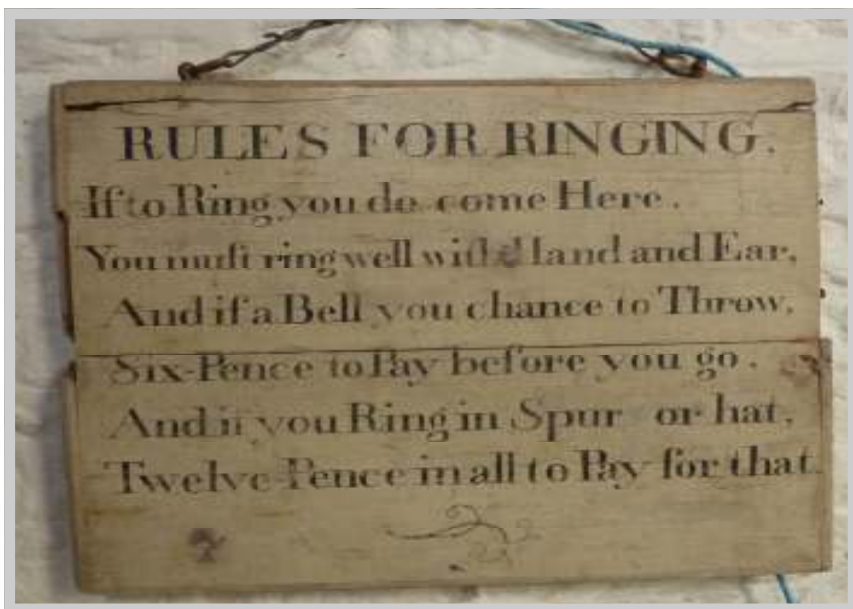 RULES FOR RINGING.
If to Ring you do come Here.
You muſt ring well with Hand and Ear,
And if a Bell you chance to Throw,
Six-Pence to Pay before you go.
And if you Ring in Spur or hat,
Twelve-Pence in all to Pay for that.